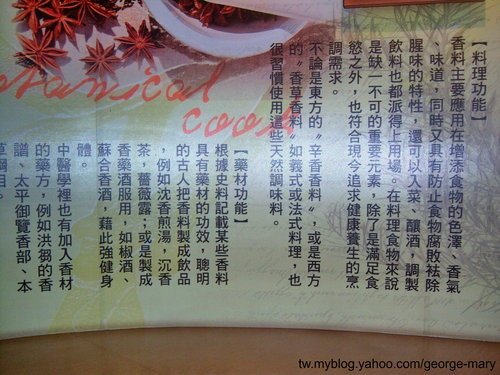 【料理功能】
香料主要應用在增添食物的色澤、香氣
、味道，同時又具有防止食物腐敗袪除
腥味的特性，還可以入菜、釀酒，調製
飲料也都派得上用場。在料理食物來說
是缺一不可的重要元素，除了是滿足食
慾之外，也符合現今追求健康養生的烹
調需求。
不論是東方的"辛香香料"，或是西方
的"香草香料"如義式或法式料理，也
很習慣使用這些天然調味料。
【藥材功能】
根據史料記載某些香料
具有藥材的功效，聰明
的古人把香料製成飲品
，例如沈香煎湯，沉香
茶，薔薇露；或是製成
香藥酒服用，如椒酒、
蘇合香酒，藉此強健身
體。
中醫學裡也有加入香材
的藥方，例如洪芻的香
譜、太平御覽香部、本
草綱目。
botanical
cook
tw.myblog.yahoo.com/george-mary